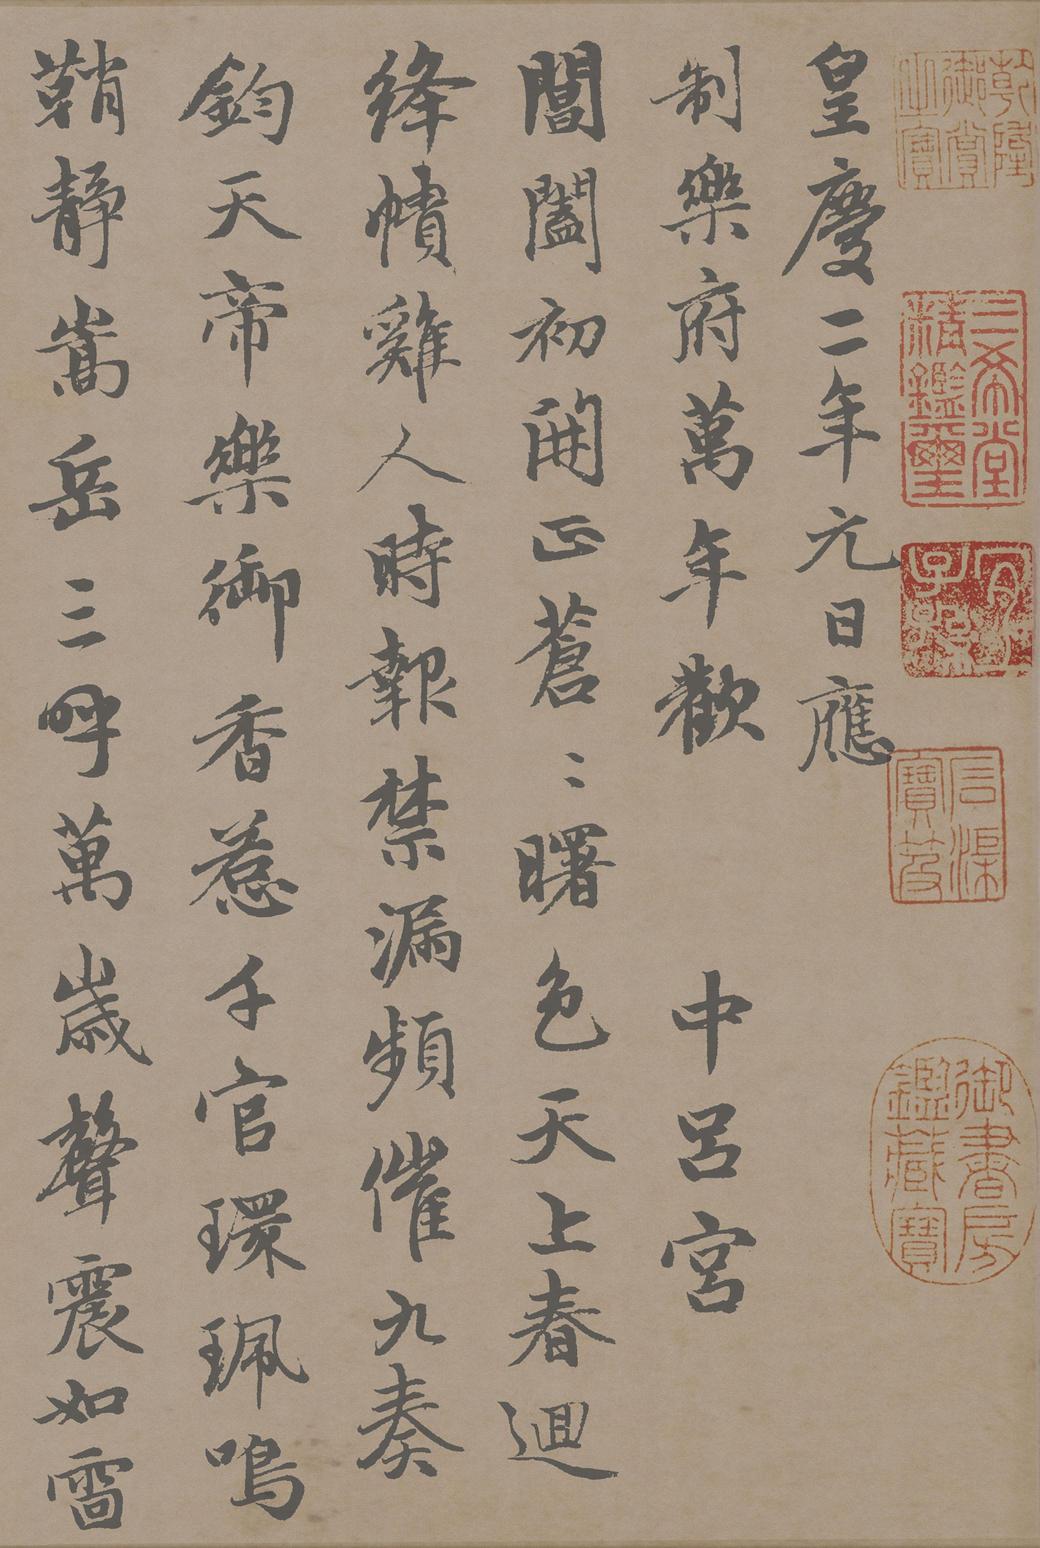 皇慶二年元日應
制樂府萬年歡　中呂宮
閶闔初開正蒼〻曙色天上春迴
絳幘雞人時報禁漏頻催九奏
鈞天帝樂御香惹千官環珮鳴
鞘靜嵩岳三呼萬歲聲震如雷
乾隆御賞之寶
三希堂精鑑璽
宜子孫
石渠寶笈
御書房鑑藏寶